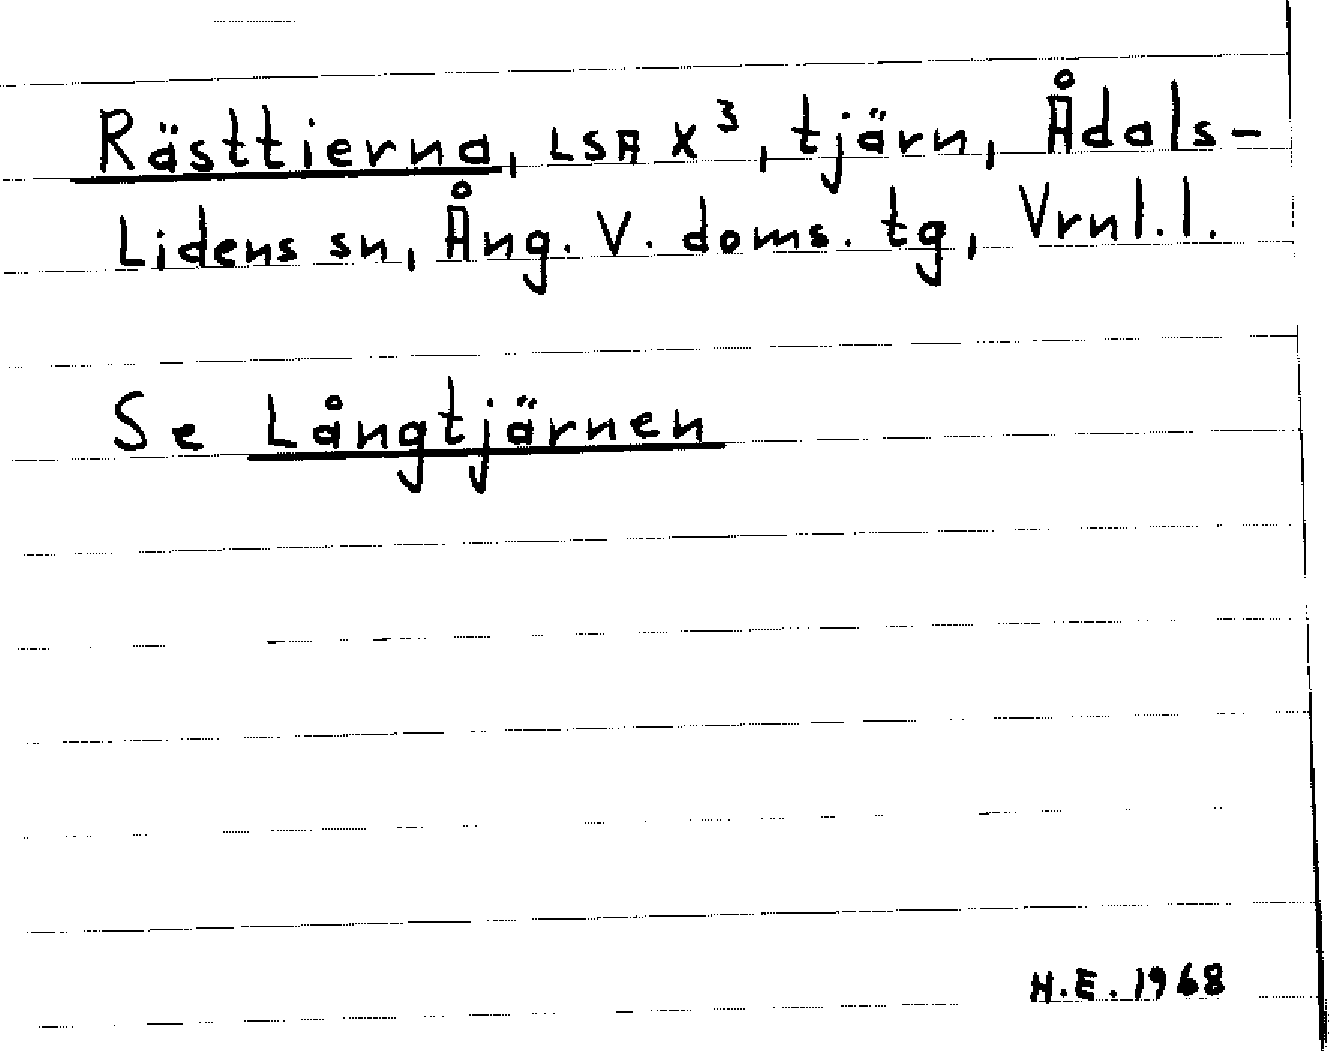 Rästtierna, LSA X³, tjärn, Ådals-
Lidens sn, Ång. V. doms. tg, Vrnl.l.
Se Långtjärnen
H.E. 1968